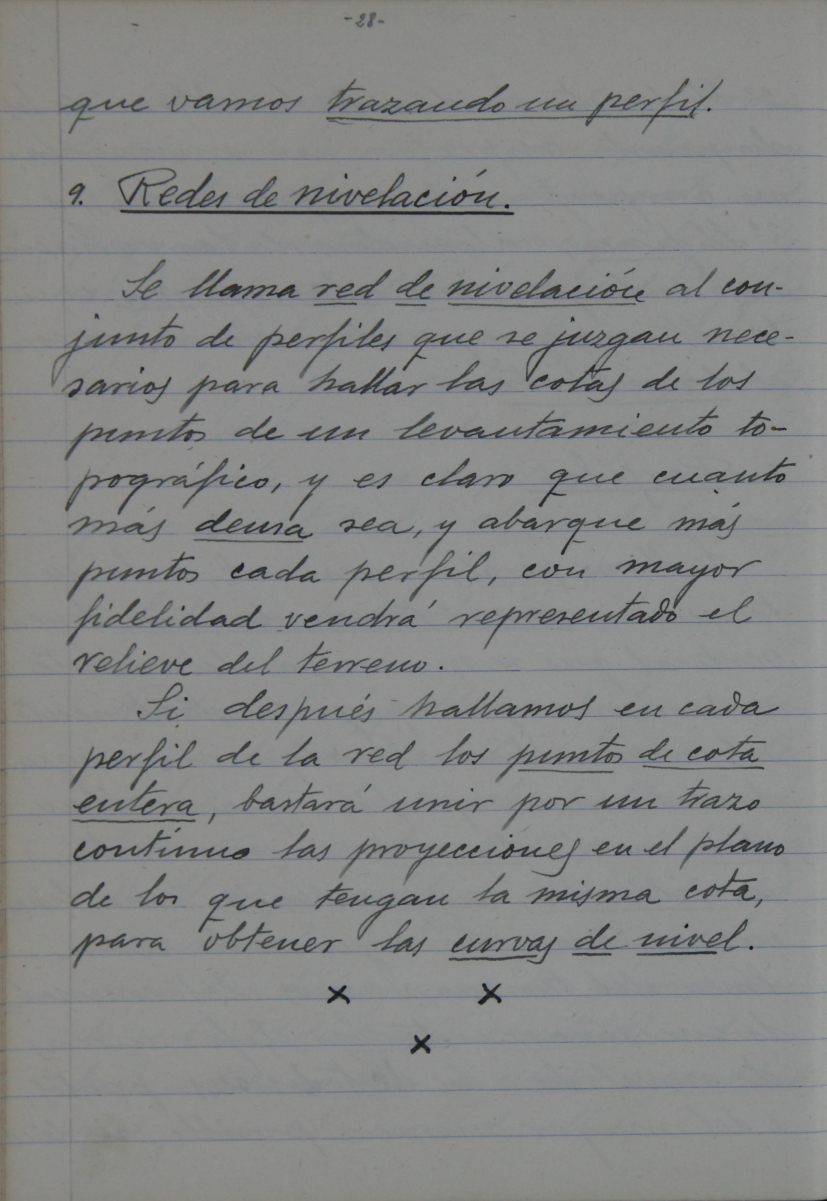 -28-
que vamos trazando un perfil.
9. Redes de nivelación.
Se llama red de nivelación al con-
junto de perfiles que se juzgan nece-
sarios para hallar las cotas de los
puntos de un levantamiento to-
pográfico, y es claro que cuanto
más densa sea, y abarque más
puntos cada perfil, con mayor
fidelidad vendrá representado el
relieve del terreno.
Si después hallamos en cada
perfil de la red los puntos de cota
entera, bastará unir por un trazo
contínuo las proyecciones en el plano
de los que tengan la misma cota,
para obtener las curvas de nivel.
x x
x